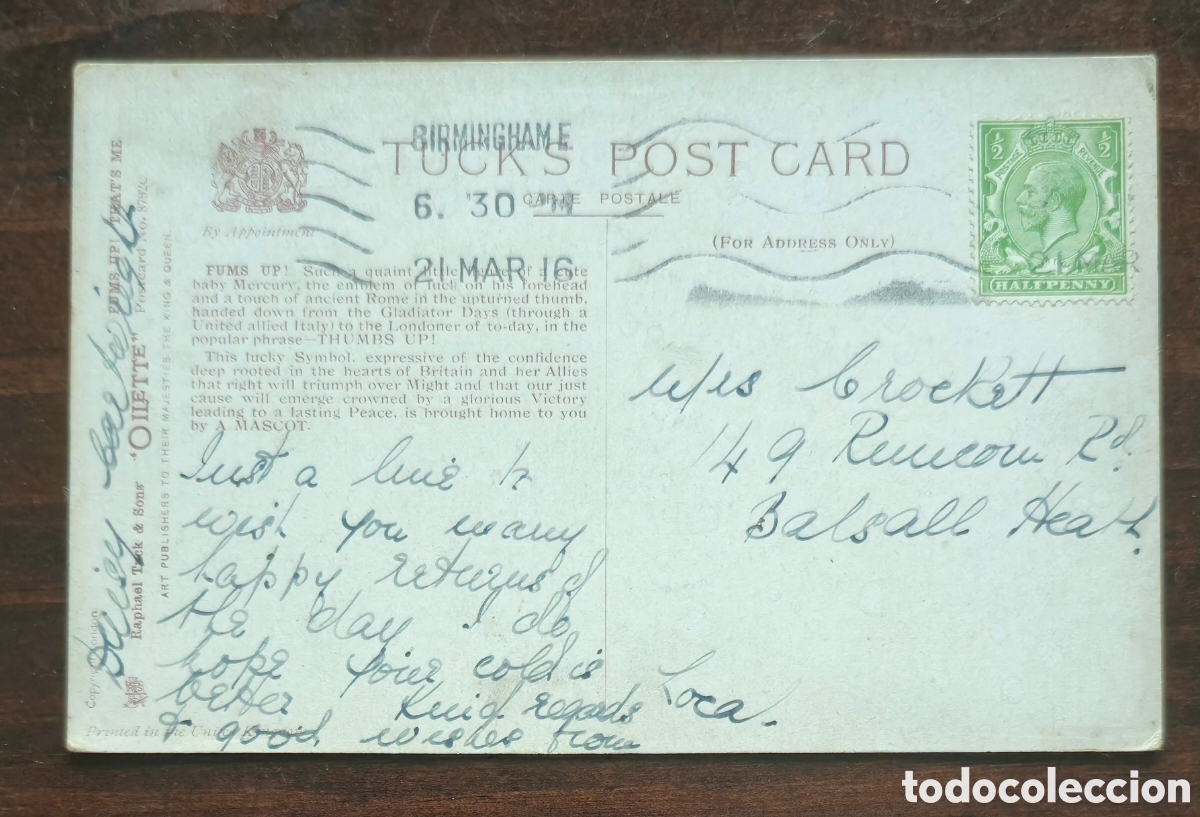 BIRMINGHAM E.
6. 30 PM
21 MAR 16
TUCK'S POST CARD
CARTE POSTALE
By Appointment
(FOR ADDRESS ONLY)
1/2 1/2
POSTAGE REVENUE
HALFPENNY
21 MAR
FUMS UP! Such a quaint little figure of a cute
baby Mercury, the emblem of luck on his forehead
and a touch of ancient Rome in the upturned thumb,
handed down from the Gladiator Days (through a
United allied Italy) to the Londoner of to-day, in the
popular phrase—THUMBS UP!
This lucky Symbol, expressive of the confidence
deep rooted in the hearts of Britain and her Allies
that right will triumph over Might and that our just
cause will emerge crowned by a glorious Victory
leading to a lasting Peace, is brought home to you
by A MASCOT.
Just a line to
wish you many
happy returns of
the day. I do
hope your cold is
better Kind regards
& good wishes from
Daisy Cartwright
Mrs Crockett
149 Runcorn Rd.
Balsall Heath.
Local.
FUMS UP! THAT'S ME
Raphael Tuck & Sons' "OILETTE" Postcard No.
ART PUBLISHERS TO THEIR MAJESTIES THE KING & QUEEN.
Copyright London
Printed in the United Kingdom
todocoleccion